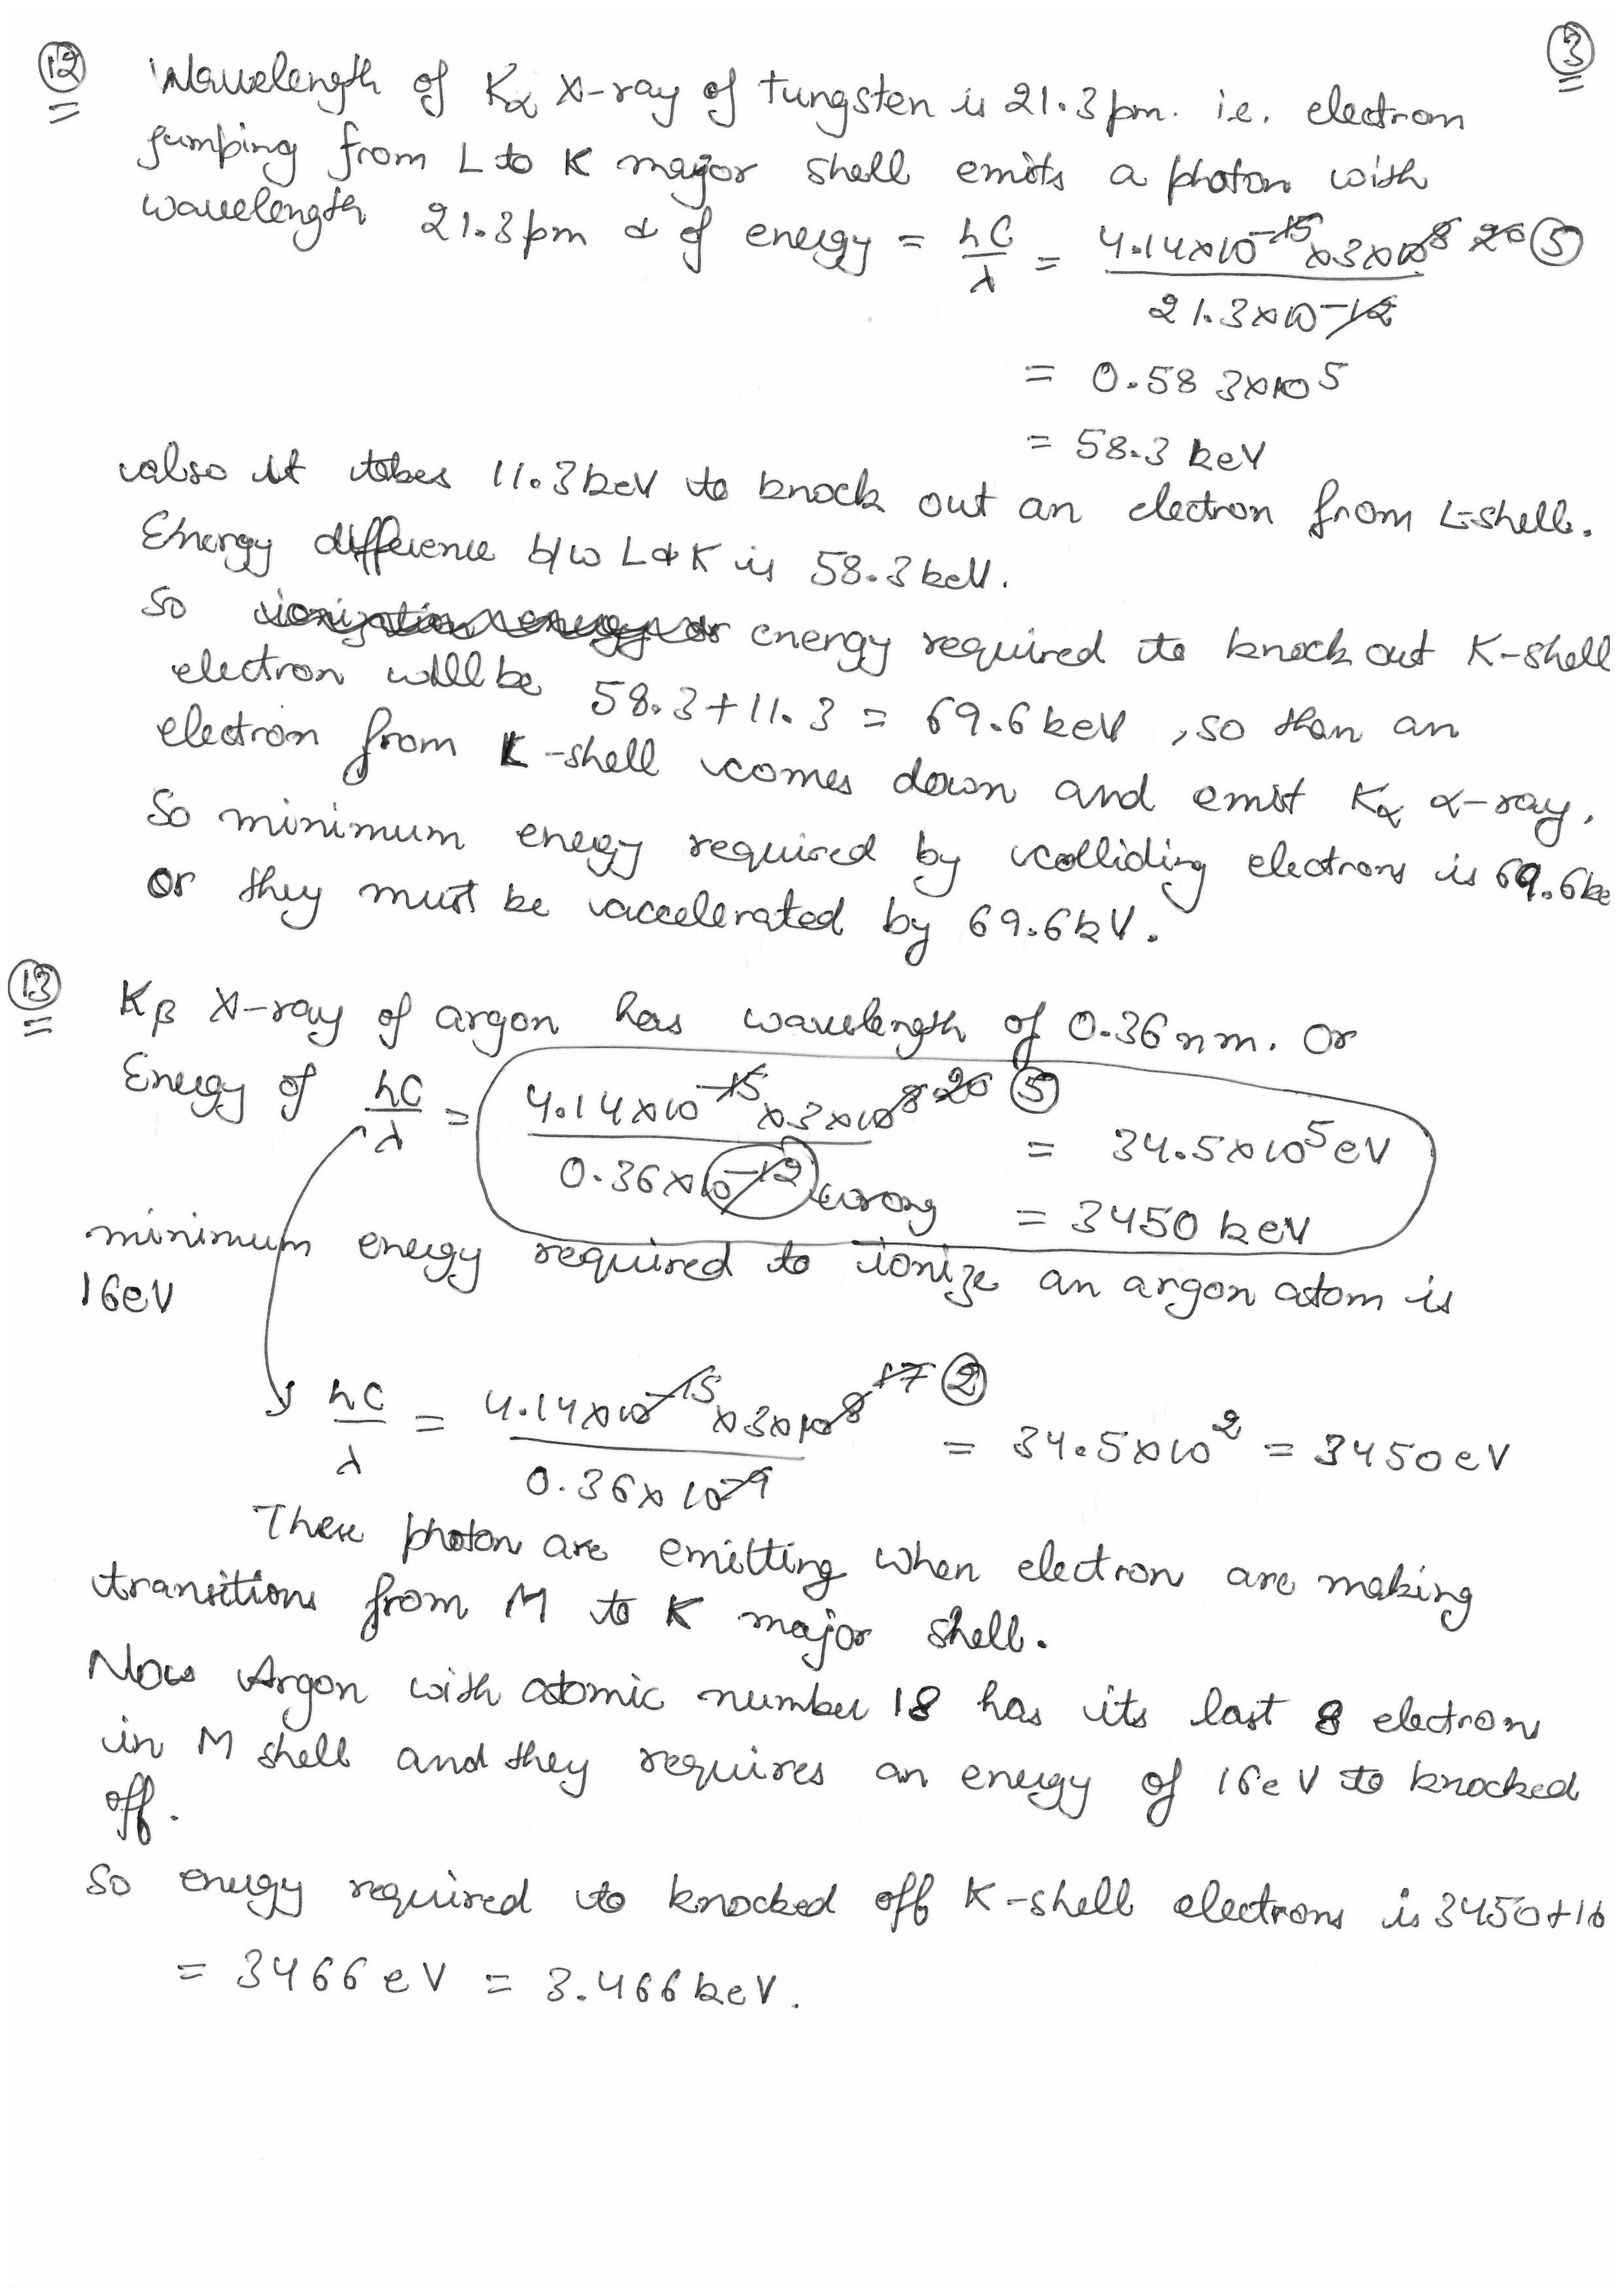 3
12 Wavelength of Kα X-ray of tungsten is 21.3 pm. i.e. electron
jumping from L to K major shell emits a photon with
wavelength 21.3 pm & of energy = hC/λ = 4.14×10^-15×3×10^8 / 21.3×10^-12 20 5
= 0.583×10^5
= 58.3 keV
also it takes 11.3 keV to knock out an electron from L-shell.
Energy difference b/w L & K is 58.3 keV.
So ionization energy or energy required to knock out K-shell
electron will be 58.3+11.3 = 69.6 keV, so than an
electron from L-shell comes down and emit Kα α-ray.
So minimum energy required by colliding electrons is 69.6 ke
or they must be accelerated by 69.6 kV.
13 Kβ X-ray of argon has wavelength of 0.36 nm. Or
Energy of hC/λ = 4.14×10^-15×3×10^8 / 0.36×10^-12 wrong 20 5 = 34.5×10^5 eV
= 3450 keV
minimum energy required to ionize an argon atom is
16eV
hC/λ = 4.14×10^-15×3×10^8 / 0.36×10^-9 17 2 = 34.5×10^2 = 3450eV
These photon are emitting when electron are making
transitions from M to K major shell.
Now Argon with atomic number 18 has its last 8 electrons
in M shell and they requires an energy of 16eV to knocked
off.
So energy required to knocked off K-shell electrons is 3450+16
= 3466 eV = 3.466 keV.